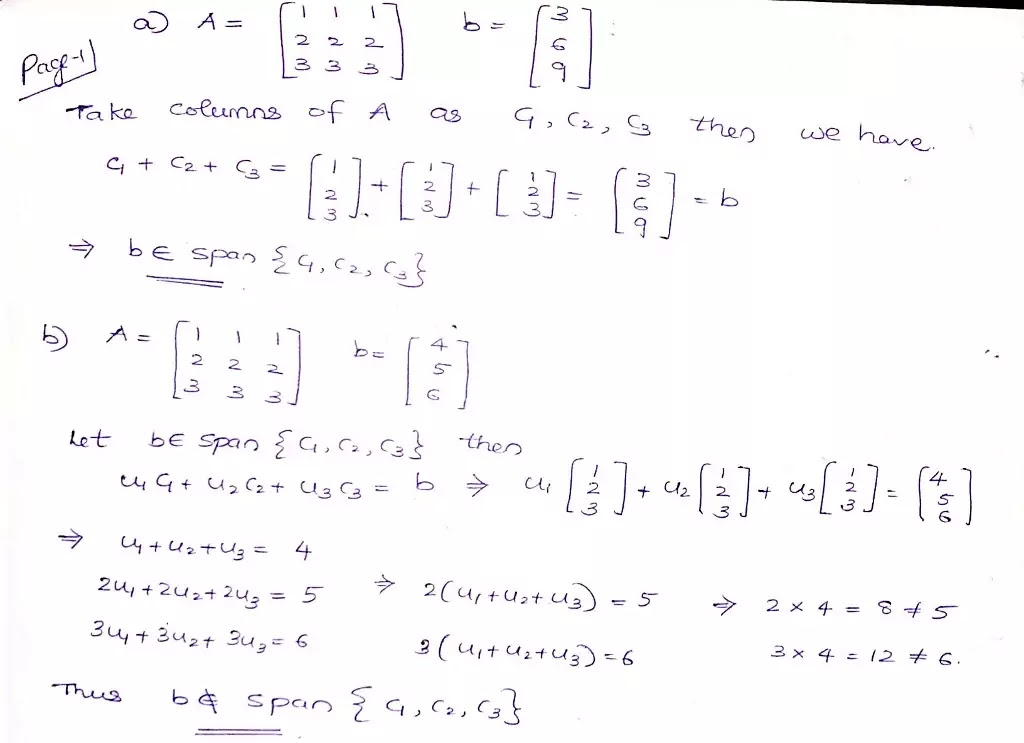 Page-1)
a) A = [1 1 1; 2 2 2; 3 3 3] b = [3; 6; 9]
Take columns of A as C₁, C₂, C₃ then we have.
C₁ + C₂ + C₃ = [1; 2; 3] + [1; 2; 3] + [1; 2; 3] = [3; 6; 9] = b
⇒ b ∈ span {C₁, C₂, C₃}
b) A = [1 1 1; 2 2 2; 3 3 3] b = [4; 5; 6]
Let b ∈ span {C₁, C₂, C₃} then
u₁C₁ + u₂C₂ + u₃C₃ = b ⇒ u₁[1; 2; 3] + u₂[1; 2; 3] + u₃[1; 2; 3] = [4; 5; 6]
⇒ u₁ + u₂ + u₃ = 4
2u₁ + 2u₂ + 2u₃ = 5 ⇒ 2(u₁ + u₂ + u₃) = 5 ⇒ 2 × 4 = 8 ≠ 5
3u₁ + 3u₂ + 3u₃ = 6 3(u₁ + u₂ + u₃) = 6 3 × 4 = 12 ≠ 6.
Thus b ∉ span {C₁, C₂, C₃}